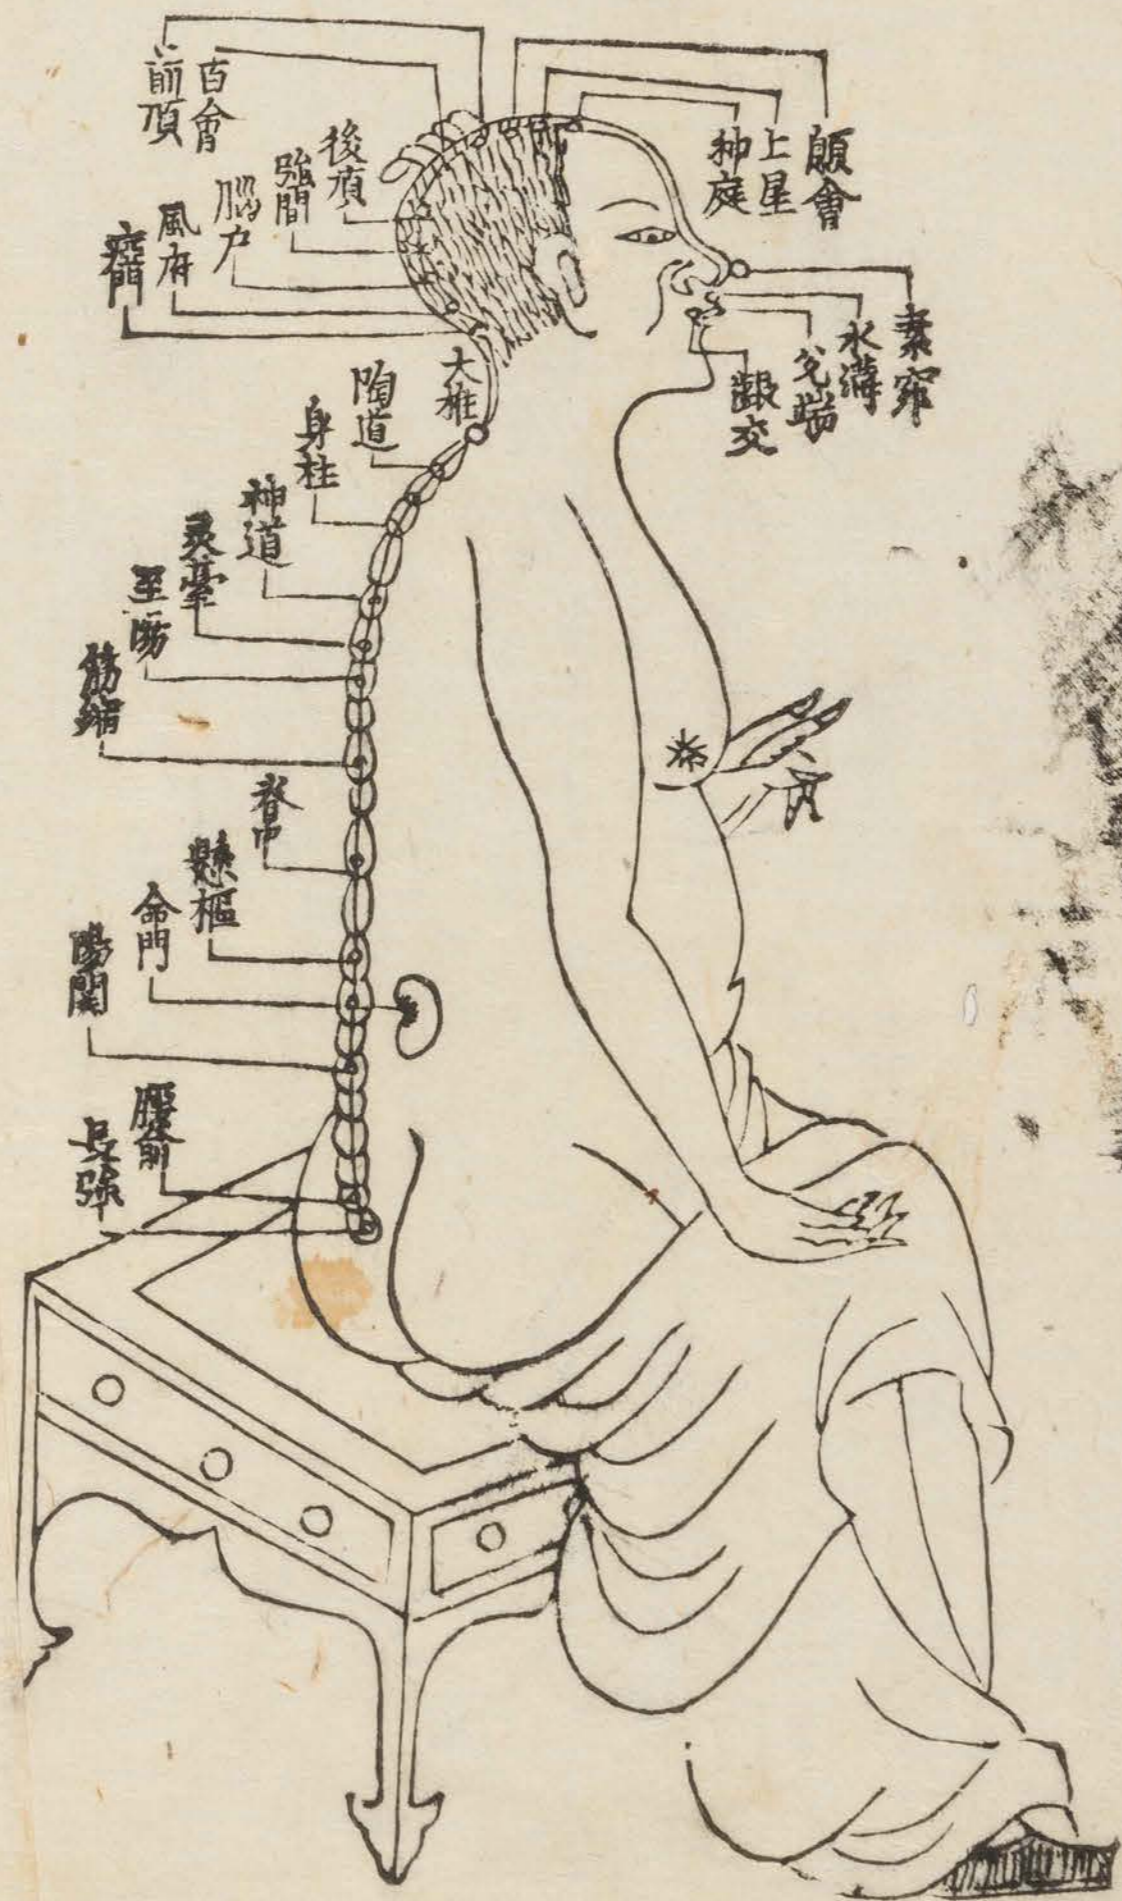 百會
前頂
後頂
強間
腦戶
風府
瘂門
顖會
上星
神庭
素窌
水溝
兌端
齦交
大椎
陶道
身柱
神道
灵臺
至陽
筋縮
脊中
懸樞
命門
陽関
腰俞
長強